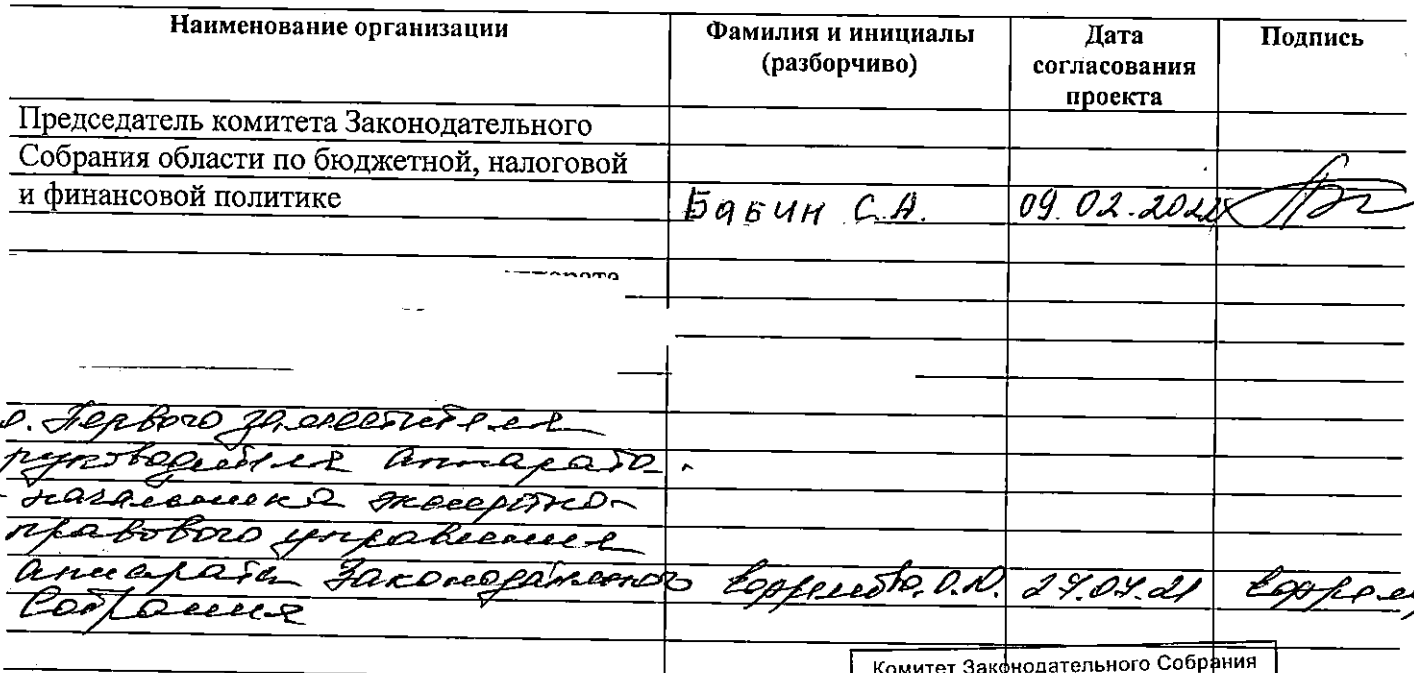 Наименование организации
Фамилия и инициалы
(разборчиво)
Дата
согласования
проекта
Подпись
Председатель комитета Законодательного
Собрания области по бюджетной, налоговой
и финансовой политике
Бабин С.А.
09.02.202
Первого заместителя
руководителя аппарата
- начальника экспертно-
правового управления
аппарата Законодательного
Собрания
Комитет Законодательного Собрания